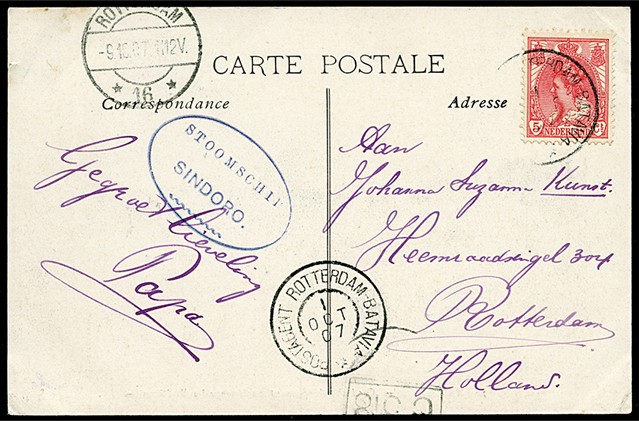 ROTTERDAM
-9.10.07.11-12V.
* 16 *
CARTE POSTALE
Correspondance
Adresse
5 NEDERL Ct
POSTAGENT ROTTERDAM-BATAVIA
STOOMSCHIP
SINDORO.
Gegroet lieveling
Papa
Aan
Johanna Suzanna Kunst.
Heemraadsingel
Rotterdam
Holland.
POSTAGENT ROTTERDAM-BATAVIA *
1
OCT
07